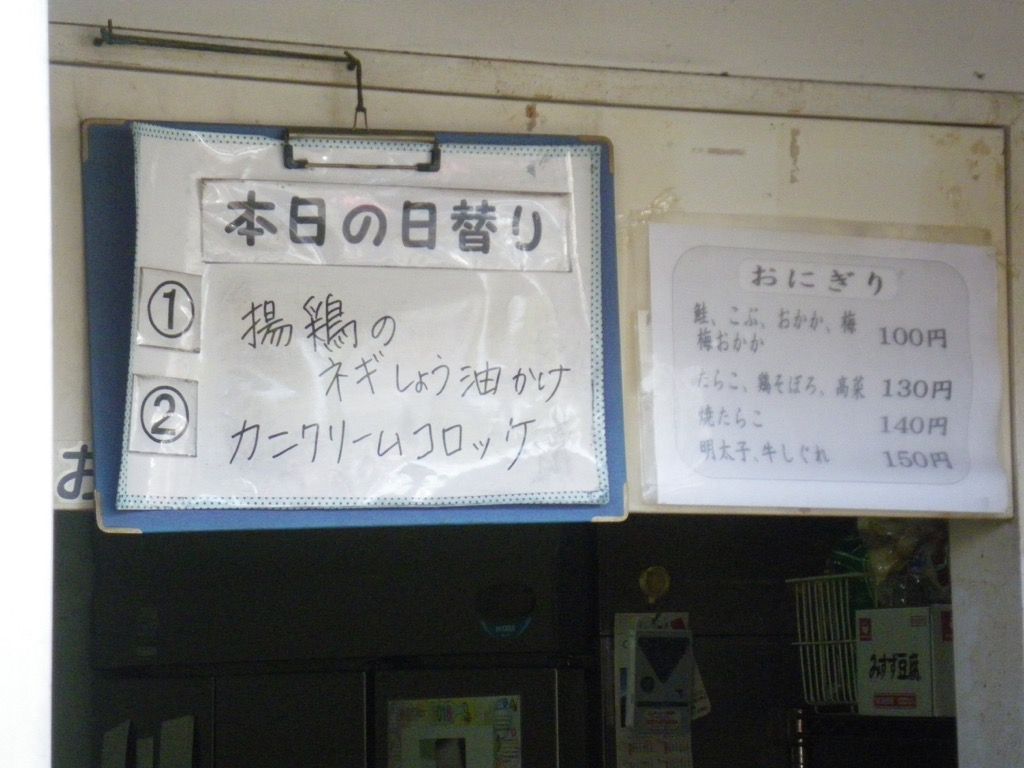 本日の日替り
①
揚鶏の
ネギしょう油かけ
②
カニクリームコロッケ
おにぎり
鮭、こぶ、おかか、梅
梅おかか 100円
たらこ、鶏そぼろ、高菜 130円
焼たらこ 140円
明太子、牛しぐれ 150円
お
みすず豆腐